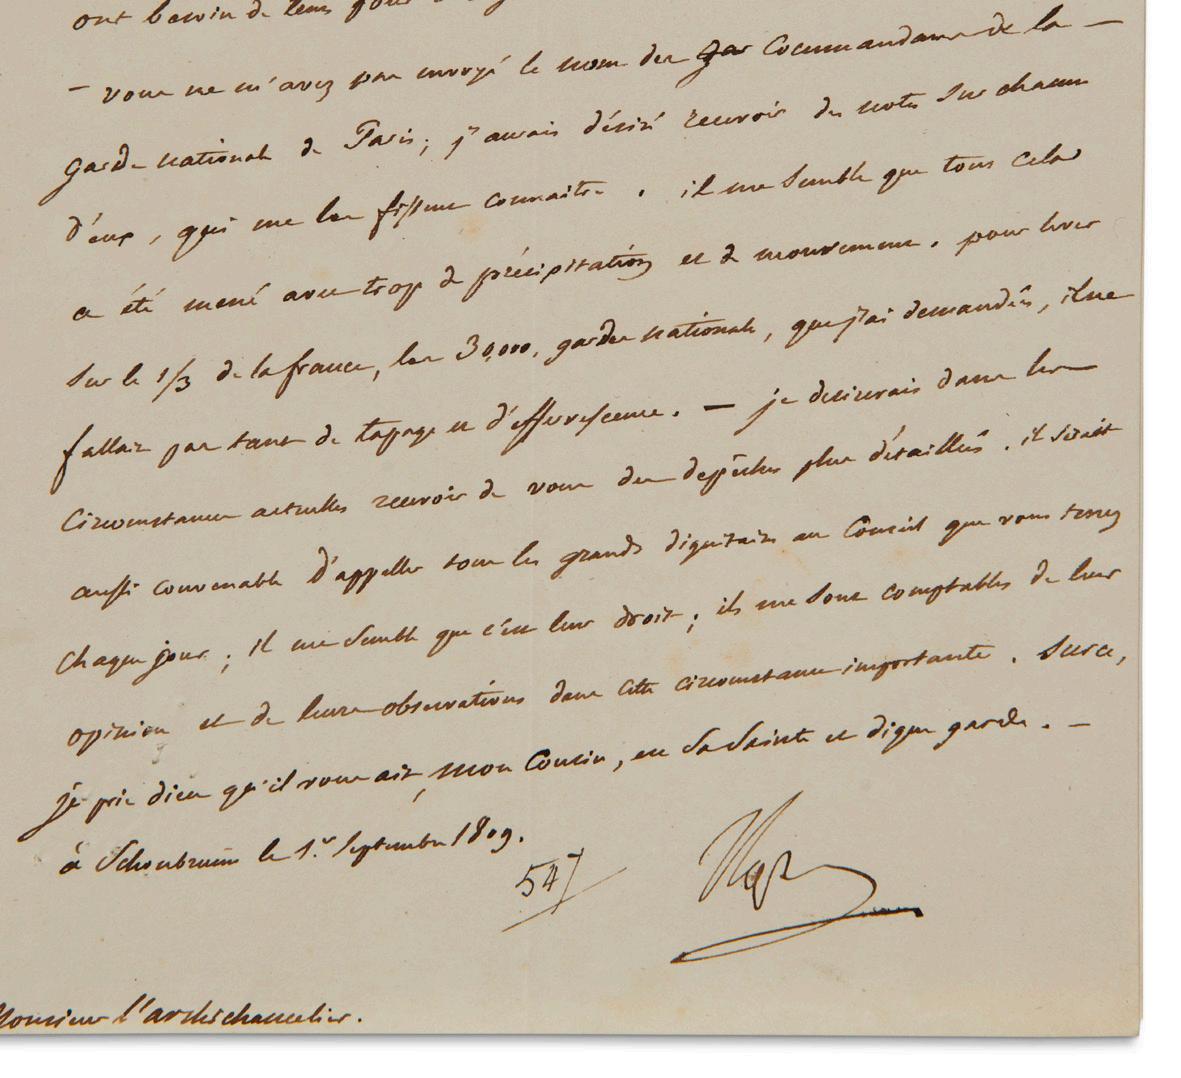 ont besoin de leurs
— vous ne m'avez pas envoyé le nom des gar Commandans de la —
garde nationale de Paris; j'aurais désiré recevoir des notes sur chacun
d'eux, qui me les fissent connaitre. il me semble que tout cela
a été mené avec trop de précipitation et de mouvement. pour lever
sur le 1/3 de la france, les 30,000, gardes nationales, que j'ai demandés, il ne
fallait pas tant de tapage et d'effervescence. — je desirerais dans les
Circonstances actuelles recevoir de vous des depêches plus détaillées. il serait
aussi convenable d'appeller tous les grands dignitaires au Conseil que vous tenez
chaque jour; il me semble que c'est leur droit; ils me sont comptables de leur
opinion et de leurs observations dans cette circonstance importante. sur ce,
je prie dieu qu'il vous ait, mon Cousin, en sa sainte et digne garde. —
à Schonbrunn le 1.er septembre 1809.
547
Nap
Monsieur l'archichancelier.